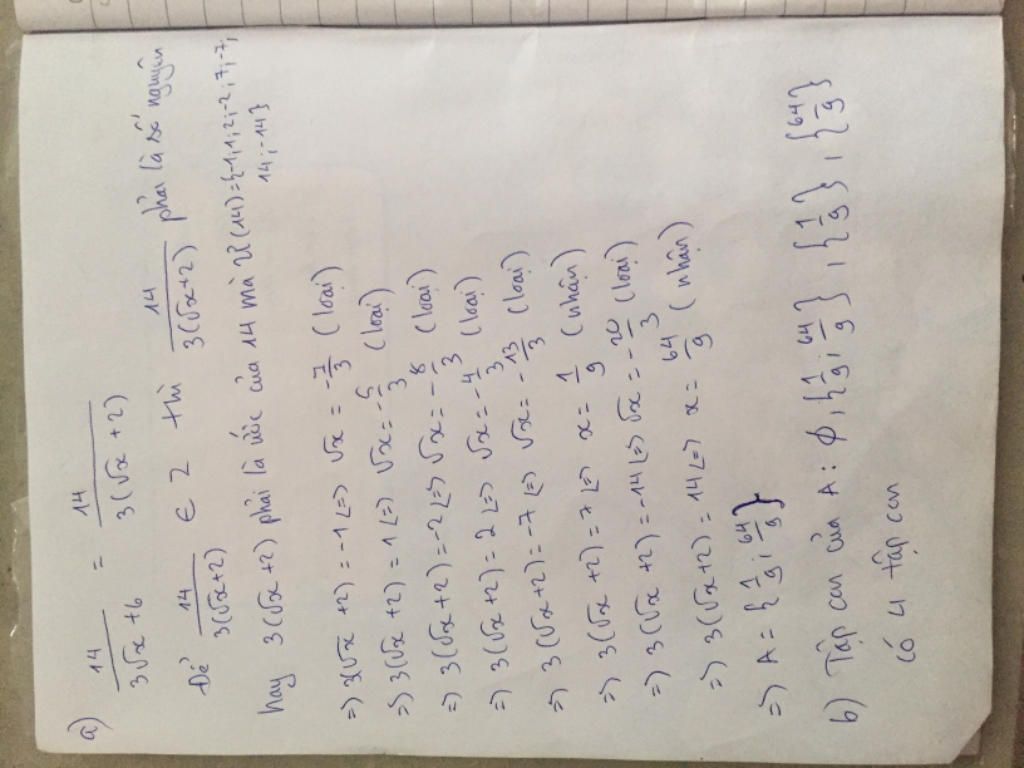 a) 14/(3√x+6) = 14/(3(√x+2))
Để 14/(3(√x+2)) ∈ Z thì 14/(3(√x+2)) phải là số nguyên
hay 3(√x+2) phải là ước của 14 mà Ư(14)={-1;1;2;-2;7;-7;
14;-14}
=> 3(√x+2)=-1 <=> √x = -7/3 (loại)
=> 3(√x+2)=1 <=> √x = -5/3 (loại)
=> 3(√x+2)=-2 <=> √x = -8/3 (loại)
=> 3(√x+2)=2 <=> √x = -4/3 (loại)
=> 3(√x+2)=-7 <=> √x = -13/3 (loại)
=> 3(√x+2)=7 <=> x = 1/9 (nhận)
=> 3(√x+2)=-14 <=> √x = -20/3 (loại)
=> 3(√x+2)=14 <=> x = 64/9 (nhận)
=> A = {1/9; 64/9}
b) Tập con của A: ∅, {1/9; 64/9}, {1/9}, {64/9}
có 4 tập con